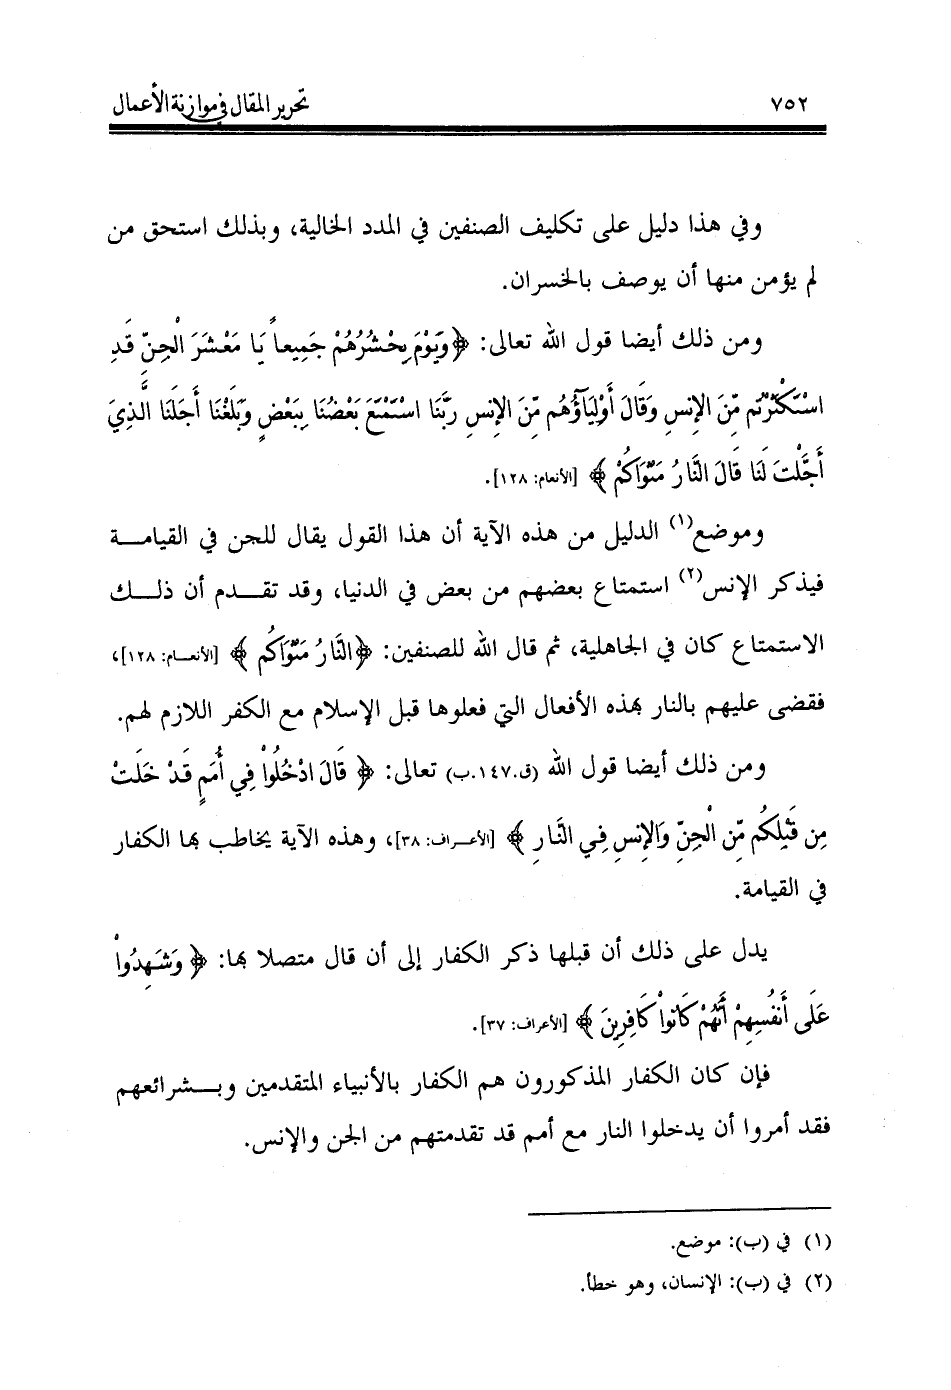 ٧٥٢ تحرير المقال في موازنة الأعمال
وفي هذا دليل على تكليف الصنفين في المدد الخالية، وبذلك استحق من
لم يؤمن منها أن يوصف بالخسران.
ومن ذلك أيضا قول الله تعالى: ﴿وَيَوْمَ يَحْشُرُهُمْ جَمِيعاً يَا مَعْشَرَ الْجِنِّ قَدِ
اسْتَكْثَرْتُم مِّنَ الإِنسِ وَقَالَ أَوْلِيَآؤُهُم مِّنَ الإِنسِ رَبَّنَا اسْتَمْتَعَ بَعْضُنَا بِبَعْضٍ وَبَلَغْنَا أَجَلَنَا الَّذِيَ
أَجَّلْتَ لَنَا قَالَ النَّارُ مَثْوَاكُمْ﴾ [الأنعام: ١٢٨].
وموضع(١) الدليل من هذه الآية أن هذا القول يقال للجن في القيامـــة
فيذكر الإنس(٢) استمتاع بعضهم من بعض في الدنيا، وقد تقـــدم أن ذلـــك
الاستمتاع كان في الجاهلية، ثم قال الله للصنفين: ﴿النَّارُ مَثْوَاكُم﴾ [الأنعـام: ١٢٨]،
فقضى عليهم بالنار بهذه الأفعال التي فعلوها قبل الإسلام مع الكفر اللازم لهم.
ومن ذلك أيضا قول الله (ق.١٤٧.ب) تعالى: ﴿قَالَ ادْخُلُواْ فِي أُمَمٍ قَدْ خَلَتْ
مِن قَبْلِكُم مِّن الْجِنِّ وَالإِنسِ فِي النَّارِ﴾ [الأعـراف: ٣٨]، وهذه الآية يخاطب بها الكفار
في القيامة.
يدل على ذلك أن قبلها ذكر الكفار إلى أن قال متصلا بها: ﴿وَشَهِدُواْ
عَلَى أَنفُسِهِمْ أَنَّهُمْ كَانُواْ كَافِرِينَ﴾ [الأعراف: ٣٧].
فإن كان الكفار المذكورون هم الكفار بالأنبياء المتقدمين وبـــشرائعهم
فقد أمروا أن يدخلوا النار مع أمم قد تقدمتهم من الجن والإنس.
(١) في (ب): موضع.
(٢) في (ب): الإنسان، وهو خطأ.